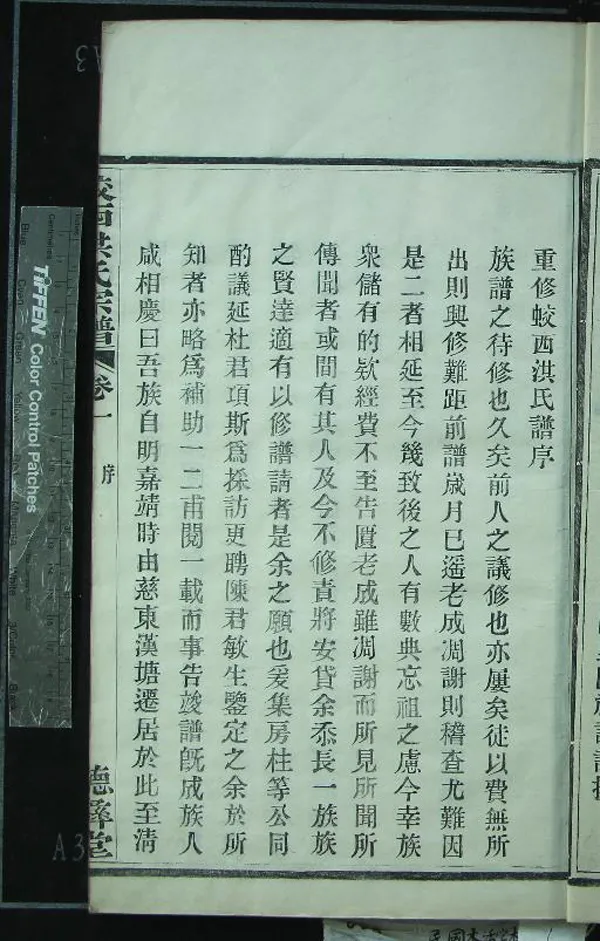 重修蛟西洪氏譜序
族譜之待修也久矣前人之議修也亦屢矣徒以費無所
出則興修難距前譜歲月已遙老成凋謝則稽查尤難因
是二者相延至今幾致後之人有數典忘祖之慮今幸族
衆儲有的欵經費不至告匱老成雖凋謝而所見所聞所
傳聞者或間有其人及今不修責將安貸余忝長一族族
之賢達適有以修譜請者是余之願也爰集房柱等公同
酌議延杜君項斯爲採訪更聘陳君敏生鑒定之余於所
知者亦略爲補助一二甫閱一載而事告竣譜旣成族人
咸相慶曰吾族自明嘉靖時由慈東漢塘遷居於此至清
蛟西洪氏宗譜 卷一 序 德彝堂
TIFFEN Color Control Patches
A3